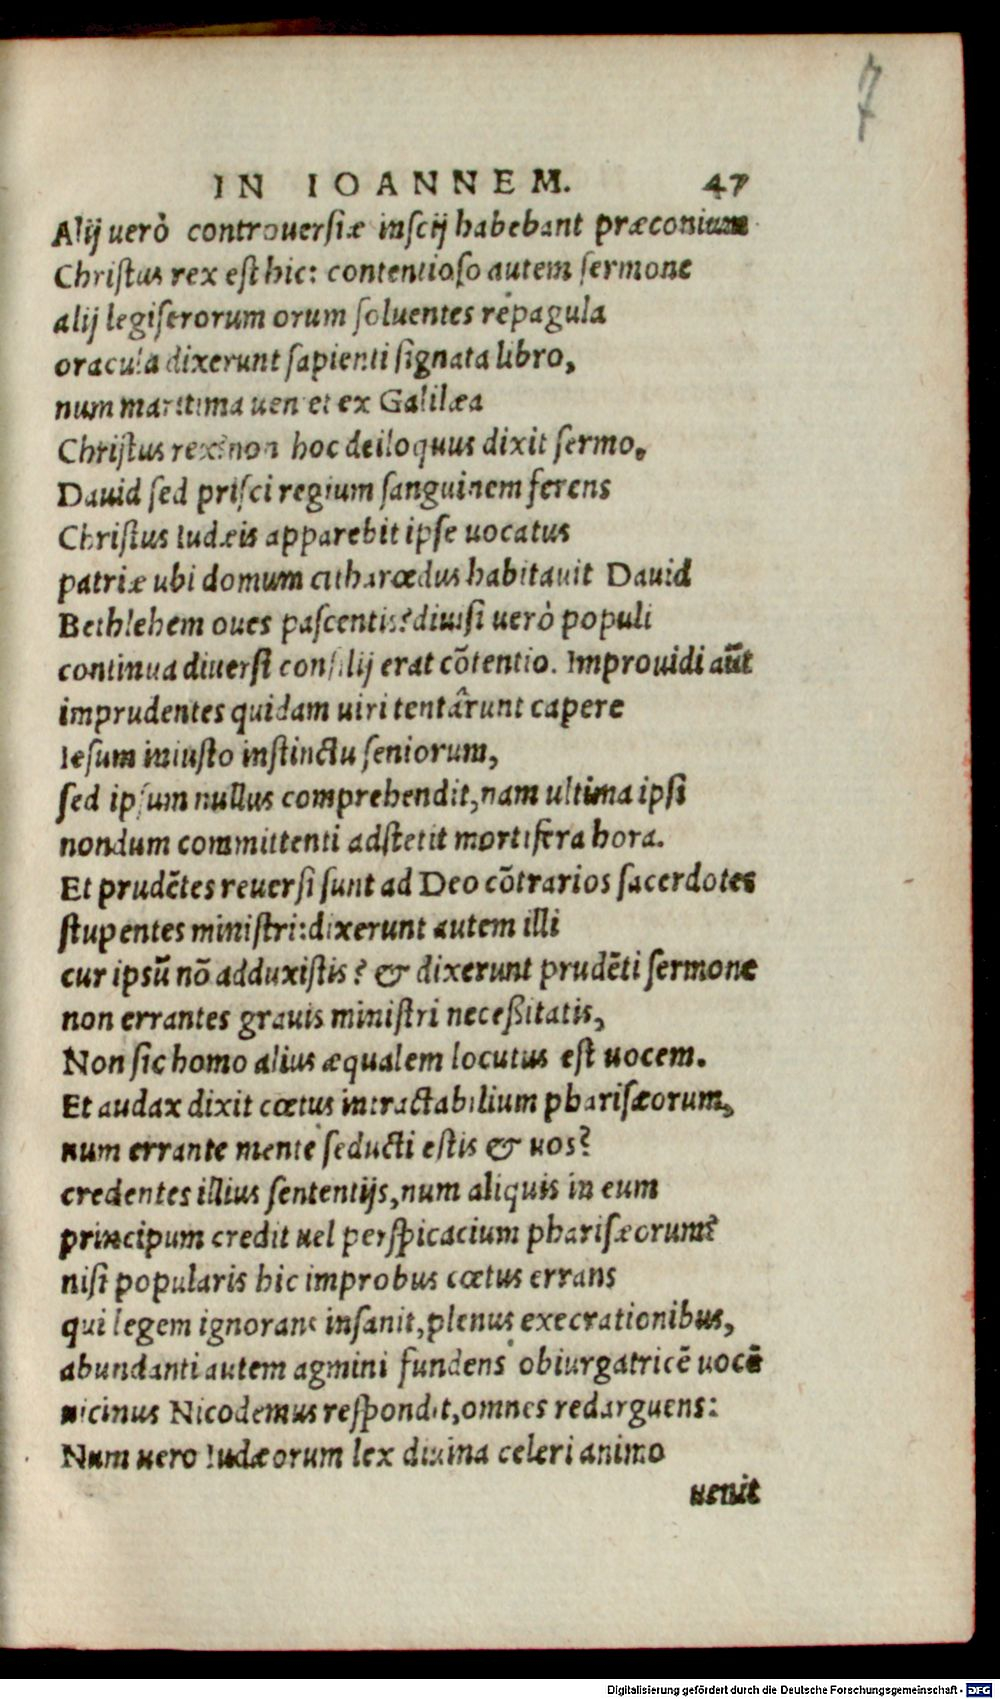 7
IN IOANNEM. 47
Alij uerò controuersiæ inscij habebant præconium
Christus rex est hic: contentioso autem sermone
alij legiferorum orum soluentes repagula
oracula dixerunt sapienti signata libro,
num maritima uenet ex Galilæa
Christus rex? non hoc deiloquus dixit sermo.
Dauid sed prisci regium sanguinem ferens
Christus Iudæis apparebit ipse uocatus
patriæ ubi domum citharœdus habitauit Dauid
Bethlehem oues pascentis? diuisi uerò populi
continua diuersi consilij erat cõtentio. Improuidi aũt
imprudentes quidam uiri tentârunt capere
Iesum iniusto instinctu seniorum,
sed ipsum nullus comprehendit, nam ultima ipsi
nondum committenti adstetit mortifera hora.
Et prudẽtes reuersi sunt ad Deo cõtrarios sacerdotes
stupentes ministri: dixerunt autem illi
cur ipsũ nõ adduxistis? & dixerunt prudẽti sermone
non errantes grauis ministri neceßitatis,
Non sic homo alius æqualem locutus est uocem.
Et audax dixit cœtus intractabilium pharisæorum,
num errante mente seducti estis & uos?
credentes illius sententijs, num aliquis in eum
principum credit uel perspicacium pharisæorum?
nisi popularis hic improbus cœtus errans
qui legem ignorans insanit, plenus execrationibus,
abundanti autem agmini fundens obiurgatricẽ uocẽ
uicinus Nicodemus respondit, omnes redarguens:
Num uero Iudæorum lex diuina celeri animo
uenit
Digitalisierung gefördert durch die Deutsche Forschungsgemeinschaft - DFG